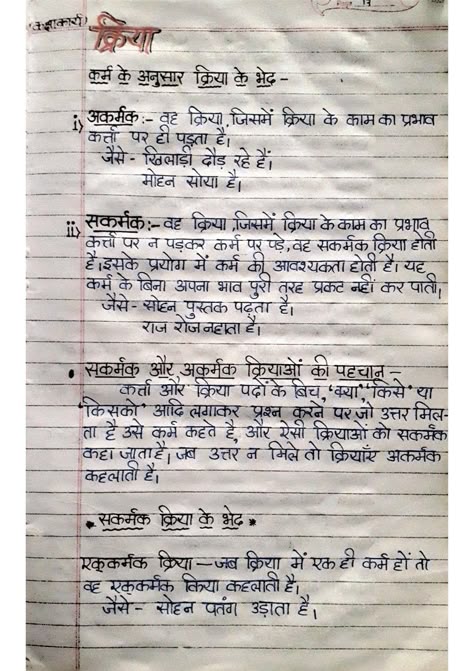 (कक्षाकार्य)
क्रिया
कर्म के अनुसार क्रिया के भेद -
i) अकर्मक :- वह क्रिया, जिसमें क्रिया के काम का प्रभाव
कर्त्ता पर ही पड़ता है।
जैसे - खिलाड़ी दौड़ रहे हैं।
मोहन सोया है।
ii) सकर्मक :- वह क्रिया, जिसमें क्रिया के काम का प्रभाव
कर्त्ता पर न पड़कर कर्म पर पड़े, वह सकर्मक क्रिया होती
है। इसके प्रयोग में कर्म की आवश्यकता होती है। यह
कर्म के बिना अपना भाव पुरी तरह प्रकट नहीं कर पाती।
जैसे - सोहन पुस्तक पढ़ता है।
राज रोज नहाता है।
• सकर्मक और अकर्मक क्रियाओं की पहचान –
कर्त्ता और क्रिया पदों के बिच, 'क्या', 'किसे' या
'किसको' आदि लगाकर प्रश्न करने पर जो उत्तर मिल-
ता है उसे कर्म कहते है, और ऐसी क्रियाओं को सकर्मक
कहा जाता है। जब उत्तर न मिले तो क्रियाएँ अकर्मक
कहलाती है।
* सकर्मक क्रिया के भेद *
एककर्मक क्रिया – जब क्रिया में एक ही कर्म हों तो
वह एककर्मक क्रिया कहलाती है।
जैसे - सोहन पतंग उड़ाता है।